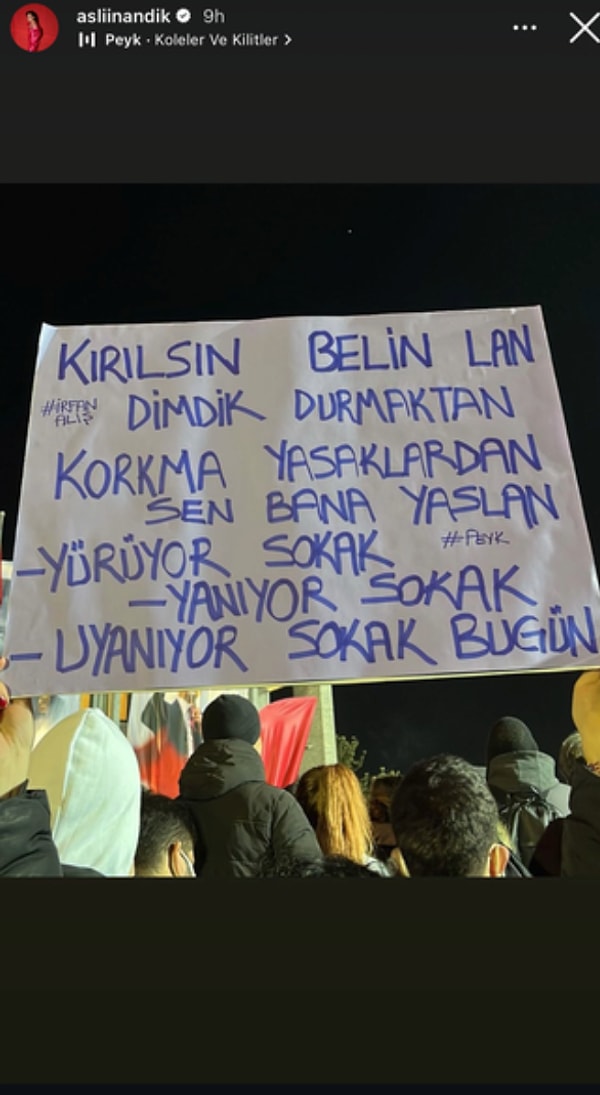 asliinandik 9h
Peyk · Koleler Ve Kilitler >
KIRILSIN BELİN LAN
#İRFAN
ALİŞ
DİMDİK DURMAKTAN
KORKMA YASAKLARDAN
SEN BANA YASLAN
#PEYK
-YÜRÜYOR SOKAK
-YANIYOR SOKAK
- UYANIYOR SOKAK BUGÜN